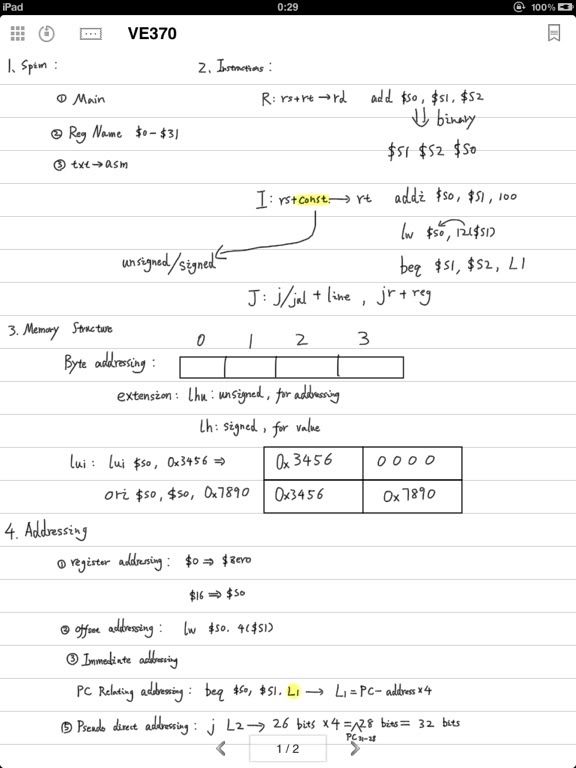 iPad 0:29 100%
VE370
1. Spim :
2. Instructions :
① Main
R: rs+rt → rd add $S0, $S1, $S2
② Reg Name $0-$31
⇓ binary
$S1 $S2 $S0
③ txt → asm
I: rs+const. → rt addi $S0, $S1, 100
lw $S0, 12($S1)
unsigned/signed
beq $S1, $S2, L1
J: j/jal + line , jr + reg
3. Memory Structure
0 1 2 3
Byte addressing :
extension : lhu : unsigned, for addressing
lh: signed, for value
lui : lui $S0, 0x3456 ⇒ 0x3456 0000
ori $S0, $S0, 0x7890 0x3456 0x7890
4. Addressing
① register addressing : $0 ⇒ $zero
$16 ⇒ $S0
② Offset addressing : lw $S0, 4($S1)
③ Immediate addressing
PC Relating addressing : beq $S0, $S1, L1 → L1 = PC - address×4
⑤ Pseudo direct addressing : j L2 → 26 bits ×4 = 28 bits = 32 bits
PC31-28
1 / 2